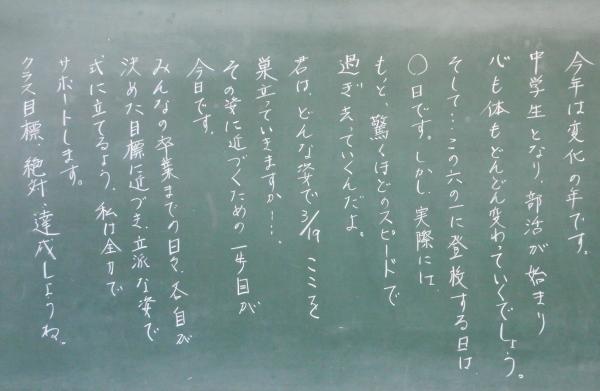 今年は変化の年です。
中学生となり、部活が始まり
心も体もどんどん変わっていくでしょう。
そして…この六の一に登校する日は
〇日です。しかし、実際には、
もっと、驚くほどのスピードで
過ぎ去っていくんだよ。
君は、どんな姿で3/19 ここを
巣立っていきますか…。
その姿に近づくための一歩目が
今日です。
みんなの卒業までの日々、各自が
決めた目標に近づき、立派な姿で
式に立てるよう、私は全力で
サポートします。
クラス目標、絶対、達成しようね。